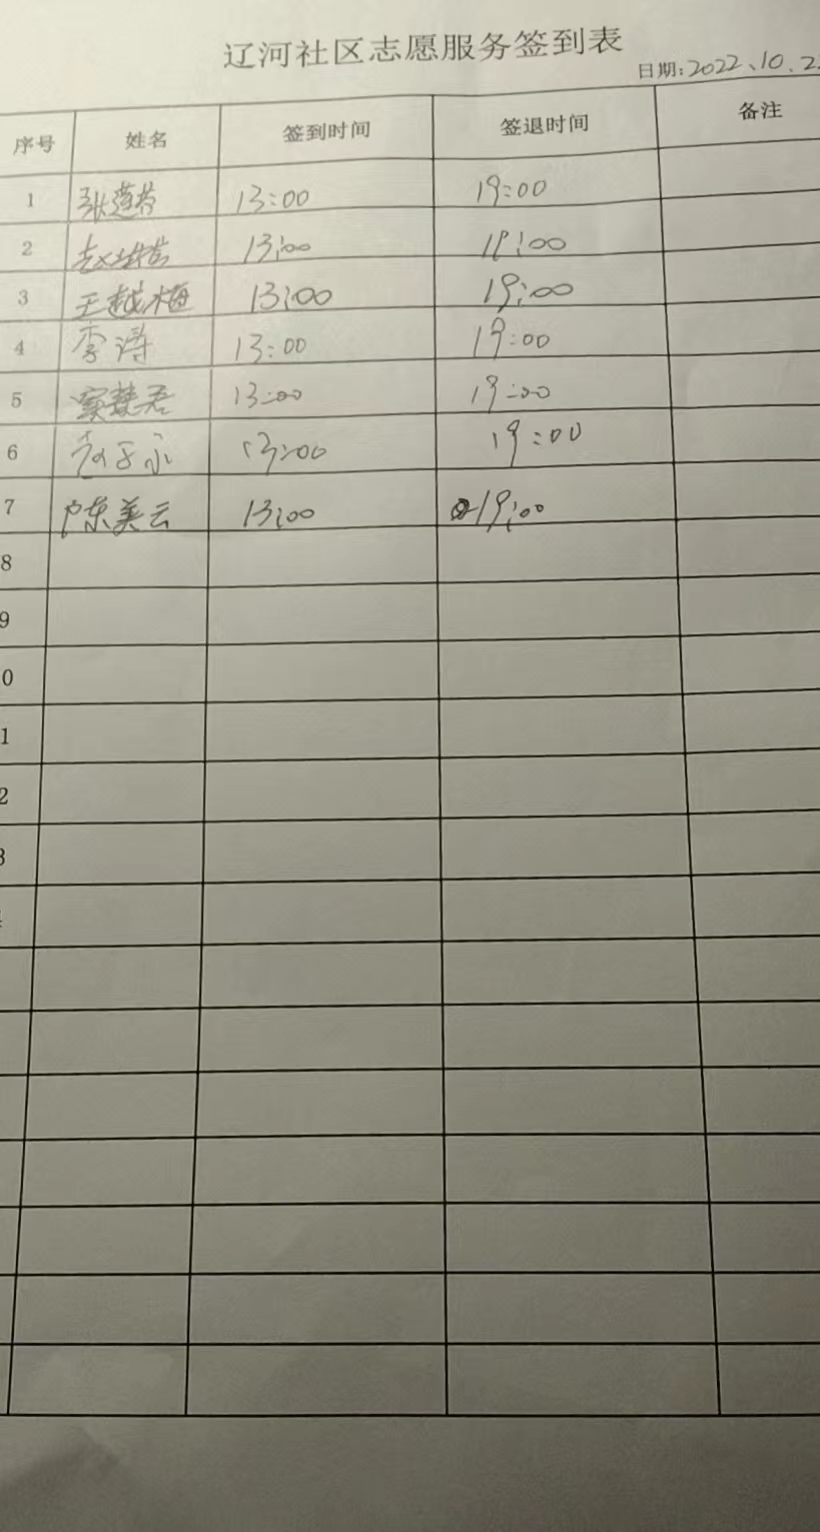 辽河社区志愿服务签到表
日期:2022、10、2
序号 姓名 签到时间 签退时间 备注
1 张莲芬 13:00 19:00
2 赵 13:00 19:00
3 王越梅 13:00 19:00
4 李涛 13:00 19:00
5 窦慧君 13:00 19:00
6 赵子永 13:00 19:00
7 陈美云 13:00 19:00
8
9
0
1
2
3